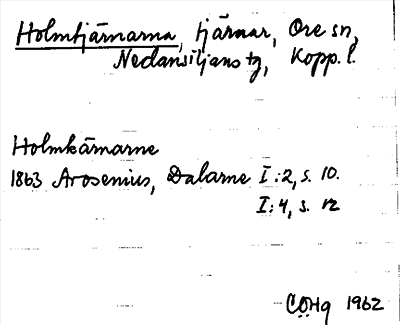 Holmtjärnarna, tjärnar, Ore sn,
Nedansiljans tg, Kopp. l.
Holmkärnarne
1863 Arosenius, Dalarne I:2, s. 10.
I:4, s. 12
COHg 1962